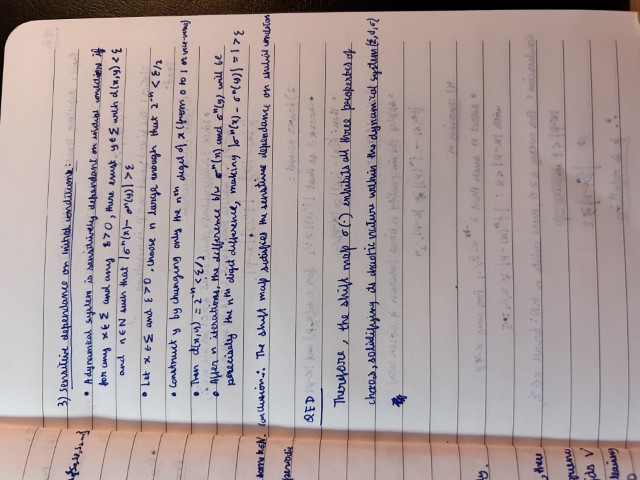 3) sensitive dependance on initial conditions:
• A dynamical system is sensitively dependant on initial conditions if
for any x ∈ Σ and any ε>0, there exist y ∈ Σ with d(x,y) < ε
and n ∈ N such that |σⁿ(x) - σⁿ(y)| > ε
• Let x ∈ Σ and ε>0, choose n large enough that 2⁻ⁿ < ε/2
• Construct y by changing only the nᵗʰ digit of x (from 0 to 1 or vice-versa)
• Then d(x,y) = 2⁻ⁿ < ε/2
• After n iterations, the difference b/w σⁿ(x) and σⁿ(y) will be
precisely the nᵗʰ digit difference, making |σⁿ(x) - σⁿ(y)| = 1 > ε
some k∈N.
Conclusion ∴ The shift map satisfies the sensitive dependance on initial conditions
periodic
QED
Therefore, the shift map σ(·) exhibits all three properties of
chaos, solidifying its chaotic nature within the dynamical system (Σ, d, σ)
ly.
, there
quence
ds V
learing